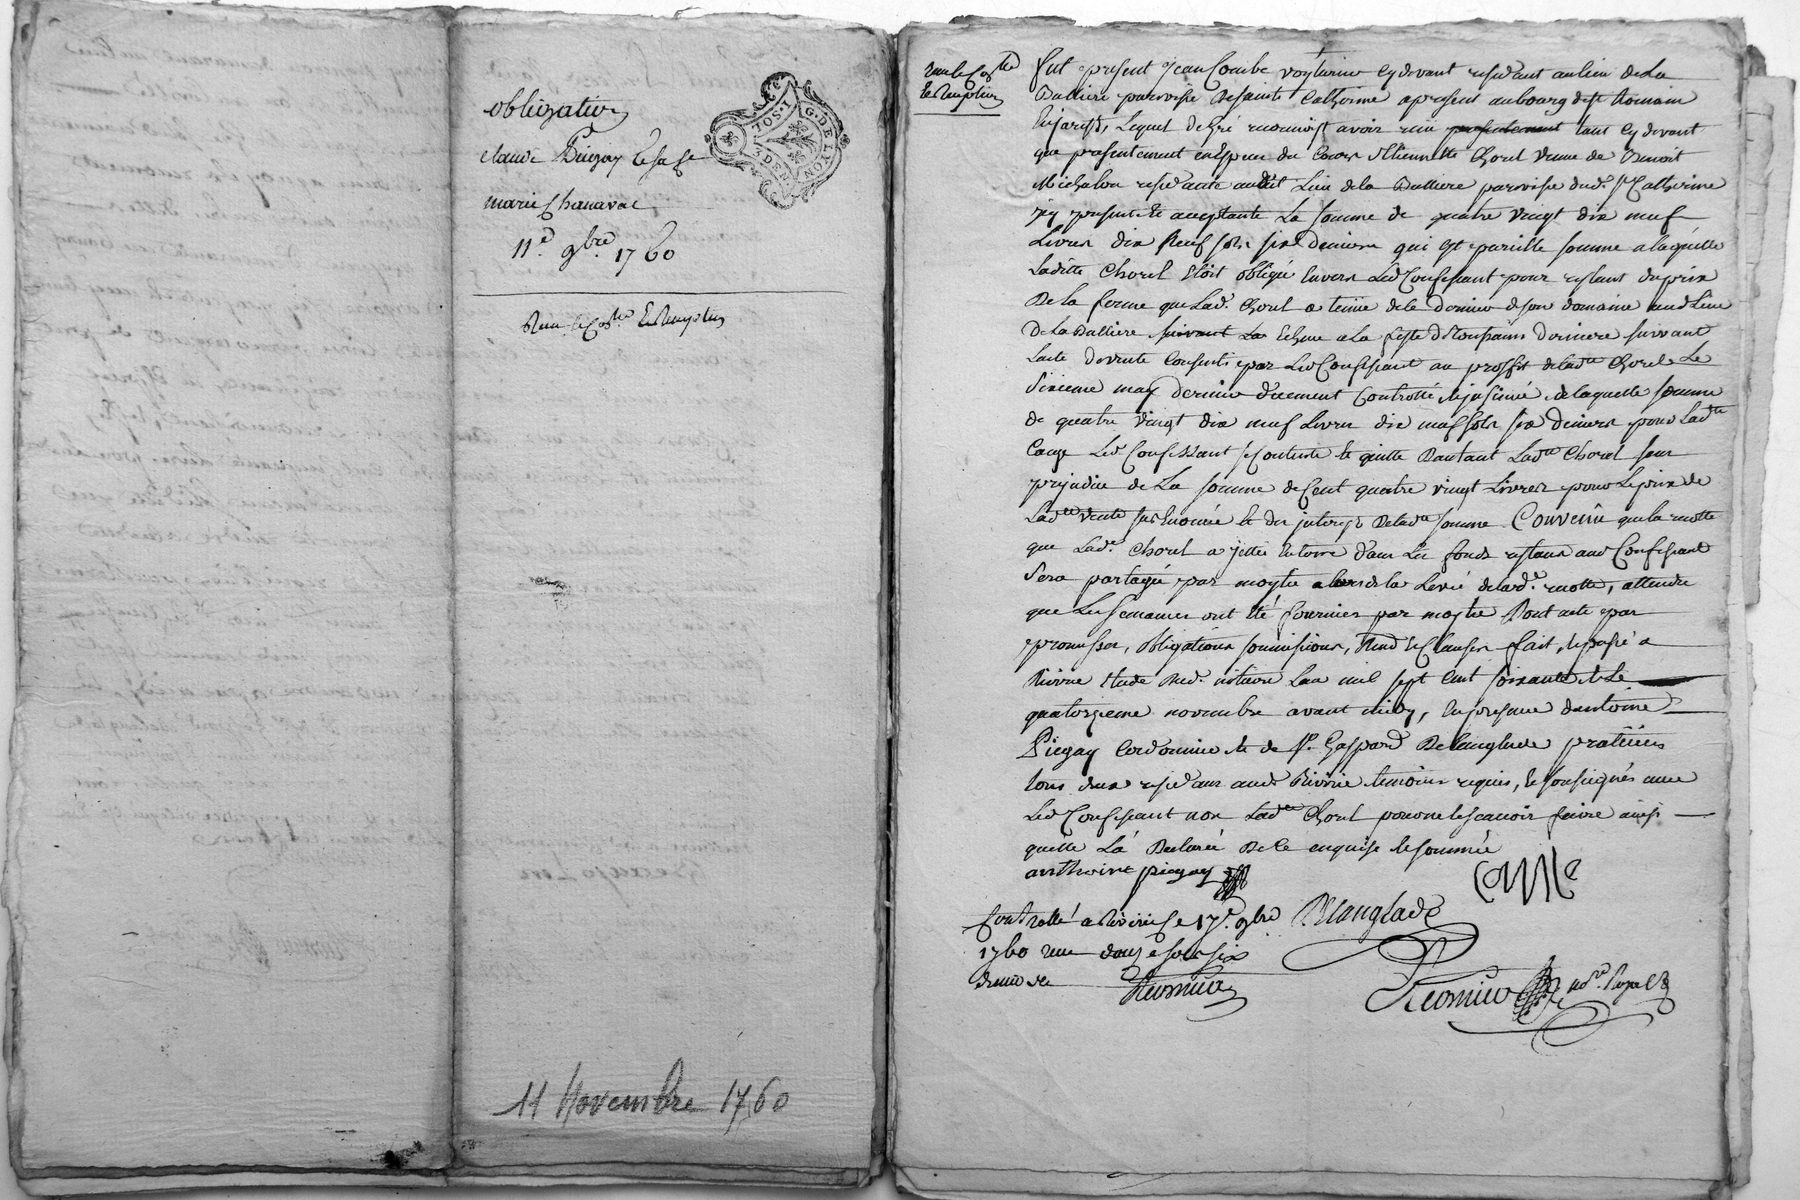 obligation
claude Piegay et sa fe
marie Chanavat
11e. 9bre. 1760
G. DE LYON
3 DEN
11 Novembre 1760
fut present Jean Combe voyturier cy devant residant au lieu de La
Dalliere parroisse de sainte Catherine a present au bourg de st Romain
En jarest, Lequel de gré reconnoist avoir reçu presentement tant cy devant
que presentement en Especes du Cours d'Etiennette Chorel veuve de Benoit
Michalon residante audit Lieu de la Dalliere parroisse dud. st Catherine
icy presente et acceptante La somme de quatre vingt dix neuf
Livres dix Neuf sols six Deniers qui est pareille somme a laquelle
Laditte Chorel Etoit obligée Envers Led Confessant pour restant du prix
De la ferme que Lad. Chorel a tenüe de ce dernier de son domaine aud Lieu
De La Dalliere suivant La Echue a La feste de Toussaints Derniere suivant
L'acte de vente Consenti par Led Confessant au proffit de ladte Chorel Le
Sixieme may dernier düement Controllé de laquelle somme
de quatre vingt dix neuf Livres dix neuf sols six Deniers pour Ladte
Cause Led Confessant se Contente et quitte D'autant Ladte Chorel sans
prejudice de La somme de Cent quatre vingt Livres pour Le prix de
Ladte vente sus Enoncée et des interest De ladte somme. Convenu que la
que Lad.e Chorel a jettée En terre dans Les fonds restans aud Confessant
Sera partagée par moytie a lors de la Levée de lad.e attendu
que Les semances ont Eté fournies par moytie Dont acte par
promesses, obligations soumissions, Renod et Clauses fait et passé a
Riverie Etude Dud. notaire L'an mil sept Cent soixante et Le
quatorzieme novembre avant midy, En presence d'antoine
Piegay Cordonnier et de sr. Gaspard Delanglade praticien
tous deux residans aud Riverie temoins requis, et soussignés avec
Led Confessant non Ladte Chorel pour ne le scavoir faire ainsi
qu'elle L'a Declarée De ce enquise et sommée
anthoine piegay
Combe
Controllé a Riverie le 17e. 9bre
Delanglade
1760 reçu douze sols six
deniers
not. Royal